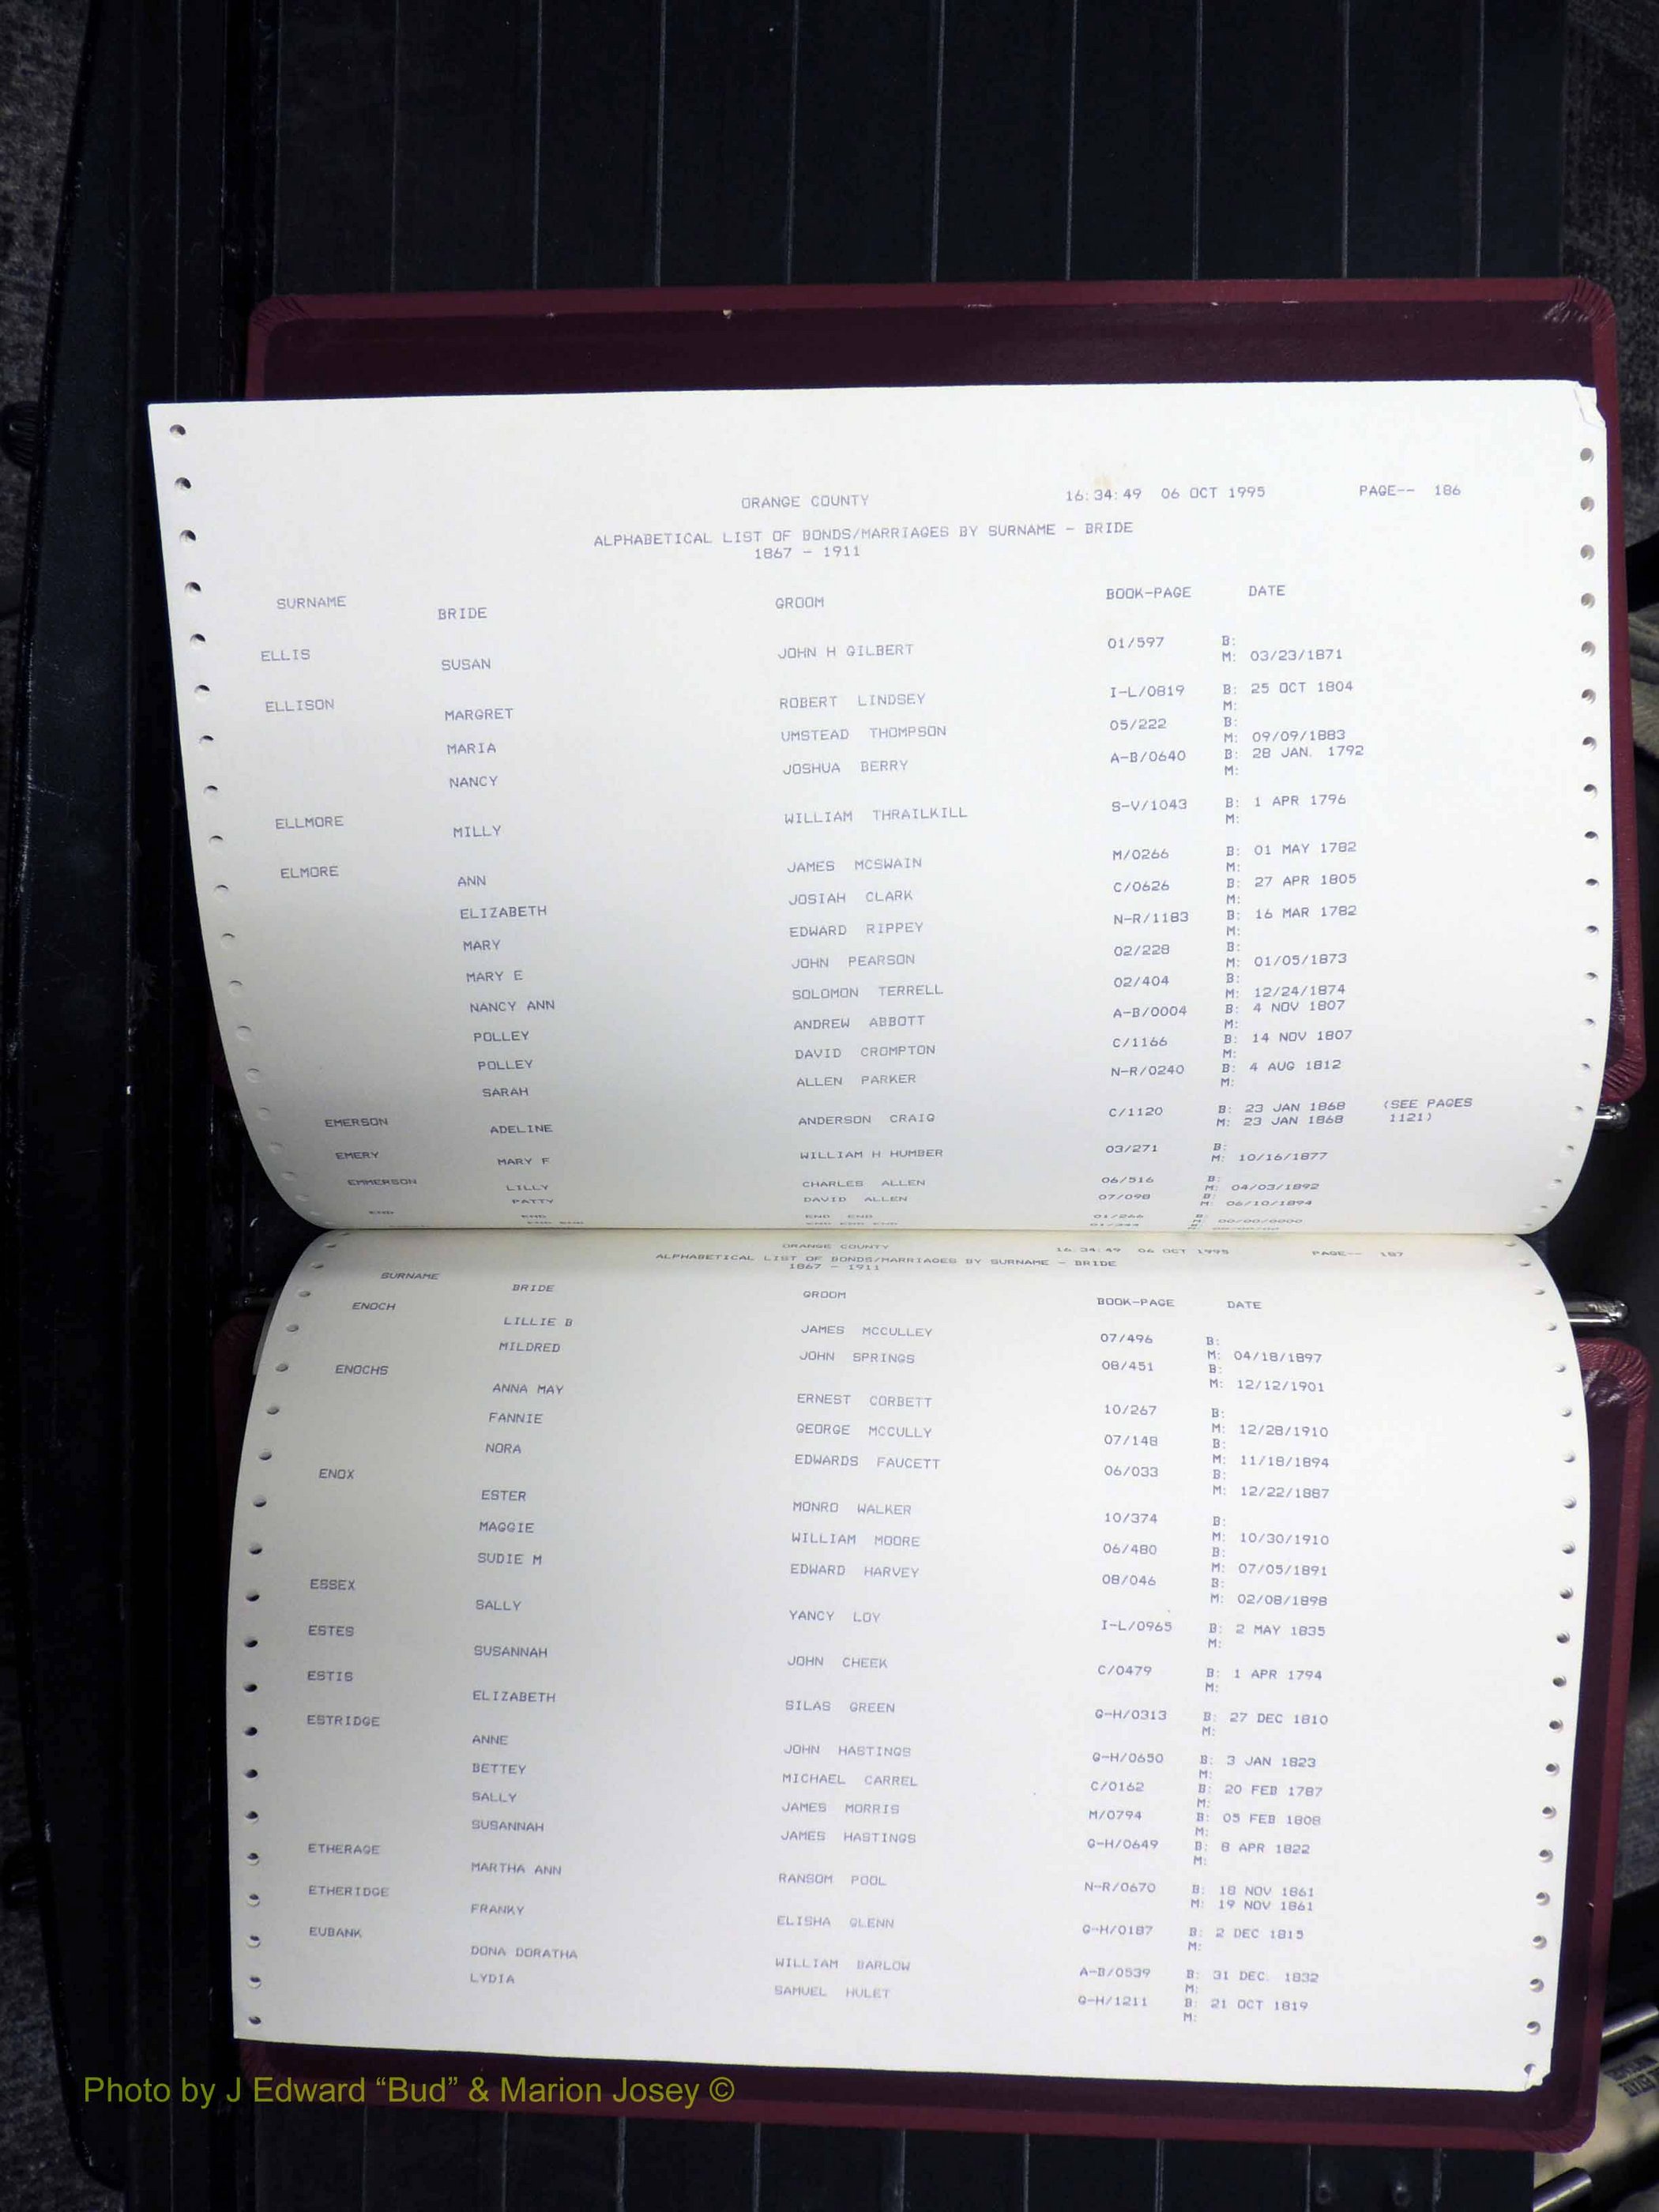 ORANGE COUNTY 16:34:49 06 OCT 1995 PAGE-- 186
ALPHABETICAL LIST OF BONDS/MARRIAGES BY SURNAME - BRIDE
1867 - 1911
SURNAME BRIDE GROOM BOOK-PAGE DATE
ELLIS SUSAN JOHN H GILBERT 01/597 B:
M: 03/23/1871
ELLISON MARGRET ROBERT LINDSEY I-L/0819 B: 25 OCT 1804
M:
MARIA UMSTEAD THOMPSON 05/222 B:
M: 09/09/1883
NANCY JOSHUA BERRY A-B/0640 B: 28 JAN. 1792
M:
ELLMORE MILLY WILLIAM THRAILKILL S-V/1043 B: 1 APR 1796
M:
ELMORE ANN JAMES MCSWAIN M/0266 B: 01 MAY 1782
M:
ELIZABETH JOSIAH CLARK C/0626 B: 27 APR 1805
M:
MARY EDWARD RIPPEY N-R/1183 B: 16 MAR 1782
M:
MARY E JOHN PEARSON 02/228 B:
M: 01/05/1873
NANCY ANN SOLOMON TERRELL 02/404 B:
M: 12/24/1874
POLLEY ANDREW ABBOTT A-B/0004 B: 4 NOV 1807
M:
POLLEY DAVID CROMPTON C/1166 B: 14 NOV 1807
M:
SARAH ALLEN PARKER N-R/0240 B: 4 AUG 1812
M:
EMERSON ADELINE ANDERSON CRAIG C/1120 B: 23 JAN 1868 (SEE PAGES
M: 23 JAN 1868 1121)
EMERY MARY F WILLIAM H HUMBER 03/271 B:
M: 10/16/1877
EMMERSON LILLY CHARLES ALLEN 06/516 B:
M: 04/03/1892
PATTY DAVID ALLEN 07/098 B:
M: 06/10/1894
END END END END 01/266 B:
M: 00/00/0000
END END END END END 01/344
ORANGE COUNTY 16:34:49 06 OCT 1995 PAGE-- 187
ALPHABETICAL LIST OF BONDS/MARRIAGES BY SURNAME - BRIDE
1867 - 1911
SURNAME BRIDE GROOM BOOK-PAGE DATE
ENOCH LILLIE B JAMES MCCULLEY 07/496 B:
M: 04/18/1897
MILDRED JOHN SPRINGS 08/451 B:
M: 12/12/1901
ENOCHS ANNA MAY ERNEST CORBETT 10/267 B:
M: 12/28/1910
FANNIE GEORGE MCCULLY 07/148 B:
M: 11/18/1894
NORA EDWARDS FAUCETT 06/033 B:
M: 12/22/1887
ENOX ESTER MONRO WALKER 10/374 B:
M: 10/30/1910
MAGGIE WILLIAM MOORE 06/480 B:
M: 07/05/1891
SUDIE M EDWARD HARVEY 08/046 B:
M: 02/08/1898
ESSEX SALLY YANCY LOY I-L/0965 B: 2 MAY 1835
M:
ESTES SUSANNAH JOHN CHEEK C/0479 B: 1 APR 1794
M:
ESTIS ELIZABETH SILAS GREEN G-H/0313 B: 27 DEC 1810
M:
ESTRIDGE ANNE JOHN HASTINGS G-H/0650 B: 3 JAN 1823
M:
BETTEY MICHAEL CARREL C/0162 B: 20 FEB 1787
M:
SALLY JAMES MORRIS M/0794 B: 05 FEB 1808
M:
SUSANNAH JAMES HASTINGS G-H/0649 B: 8 APR 1822
M:
ETHERAGE MARTHA ANN RANSOM POOL N-R/0670 B: 18 NOV 1861
M: 19 NOV 1861
ETHERIDGE FRANKY ELISHA GLENN G-H/0187 B: 2 DEC 1815
M:
EUBANK DONA DORATHA WILLIAM BARLOW A-B/0539 B: 31 DEC. 1832
M:
LYDIA SAMUEL HULET G-H/1211 B: 21 OCT 1819
M:
Photo by J Edward “Bud” & Marion Josey ©